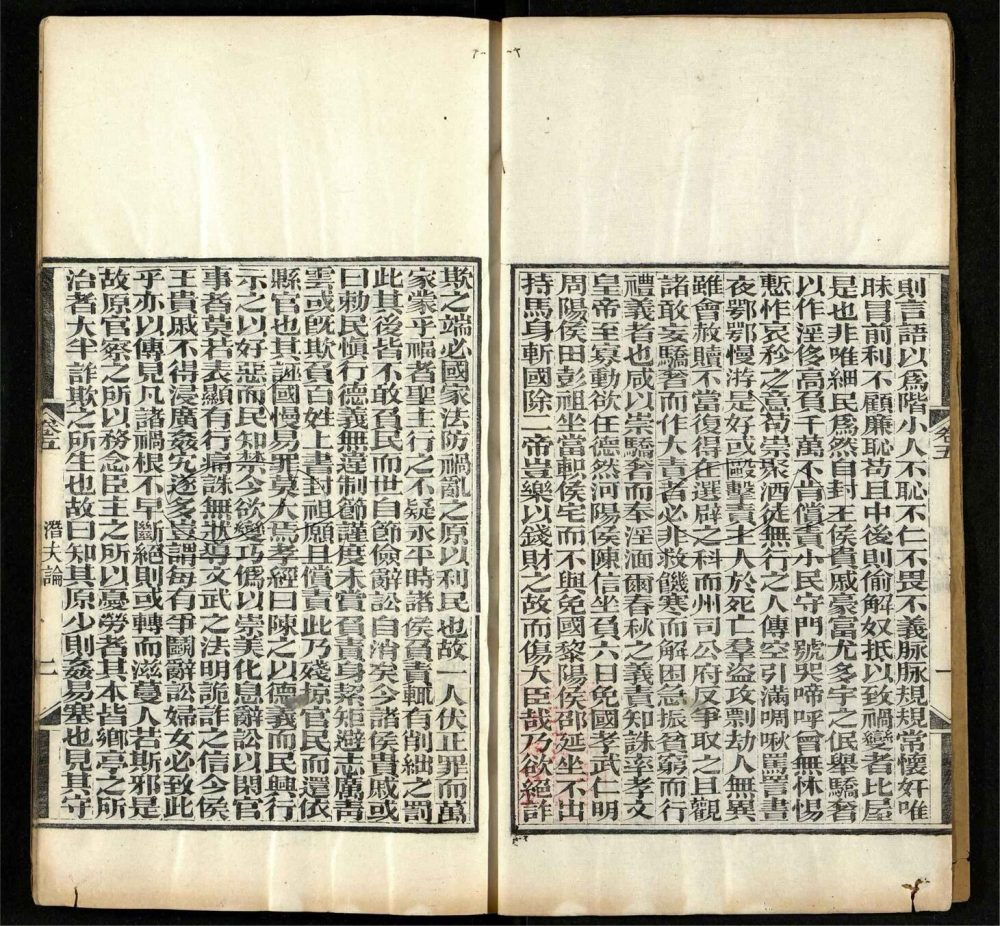 則言語以爲階小人不恥不仁不畏不義脉脉規規常懷奸唯
昧冒前利不顧廉恥苟且中後則偷解奴抵以致禍變者比屋
是也非唯細民爲然自封王侯貴戚豪富尤多字之佷舉驕奢
以作淫侈高負千萬不肯償責小民守門號哭啼呼曾無怵惕
慙怍哀矜之意苟崇聚酒徒無行之人傳空引滿啁啾罵詈晝
夜鄂鄂慢游是好或毆擊責主人於死亡羣盜攻剽劫人無異
雖會赦贖不當復得在選辟之科而州司公府反爭取之且觀
諸敢妄驕奢而作大責者必非救饑寒而解困急振貧窮而行
禮義者也咸以崇驕奢而奉淫湎爾春秋之義責知誅率孝文
皇帝至寡動欲任德然河陽侯陳信坐負六日免國孝武仁明
周陽侯田彭祖坐當軹侯宅而不與免國黎陽侯邵延坐不出
持馬身斬國除二帝豈樂以錢財之故而傷大臣哉乃欲絕詐
卷五
一
欺之端必國家法防禍亂之原以利民也故一人伏正罪而萬
家蒙乎福者聖主行之不疑永平時諸侯負責輒有削絀之罰
此其後皆不敢負民而世自節儉辭訟自消矣今諸侯貴戚或
曰勑民愼行德義無違制節謹度未嘗負責身絜矩避志厲靑
雲或旣欺負百姓上書封祖願且償責此乃殘掠官民而還依
縣官也其誣國慢易罪莫大焉孝經曰陳之以德義而民興行
示之以好惡而民知禁今欲變巧僞以崇美化息辭訟以閑官
事者莫若表顯有行痛誅無狀導文武之法明詭詐之信今侯
王貴戚不得浸廣姦宄遂多豈謂每有爭鬬辭訟婦女必致此
乎亦以傳見凡諸禍根不早斷絕則或轉而滋蔓人若斯邪是
故原官察之所以務念臣主之所以憂勞者其本皆鄉亭之所
治者大半詐欺之所生也故曰知其原少則姦易塞也見其守
卷五
潛夫論
二